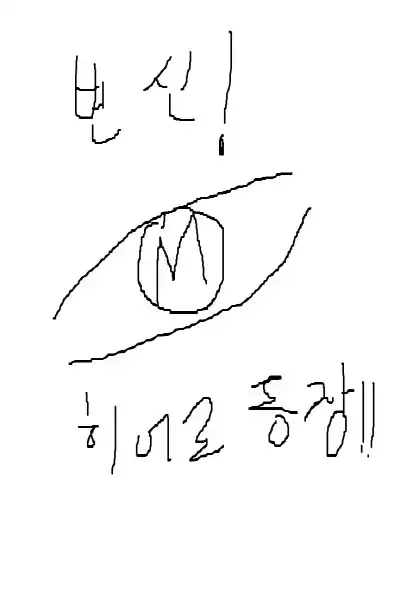 변신!
M
히어로 등장!!